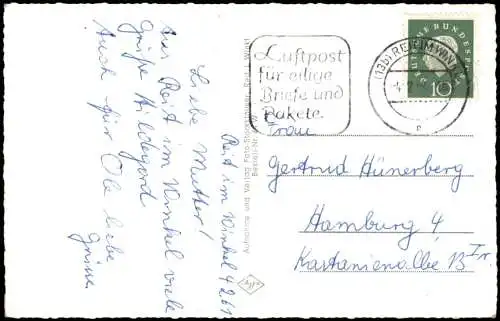 Reit im Winkel 4 2 61
Liebe Mutter!
Aus Reit im Winkel viele
Grüße Hildegard
Auch für Ole liebe
Grüsse
Luftpost
für eilige
Briefe und
Pakete
(13b) REIT IM WINKL
DEUTSCHE BUNDESPOST
10
Frau
Gertrud Hünerberg
Hamburg 4
Kastanienallee 13 Ir
Agfa